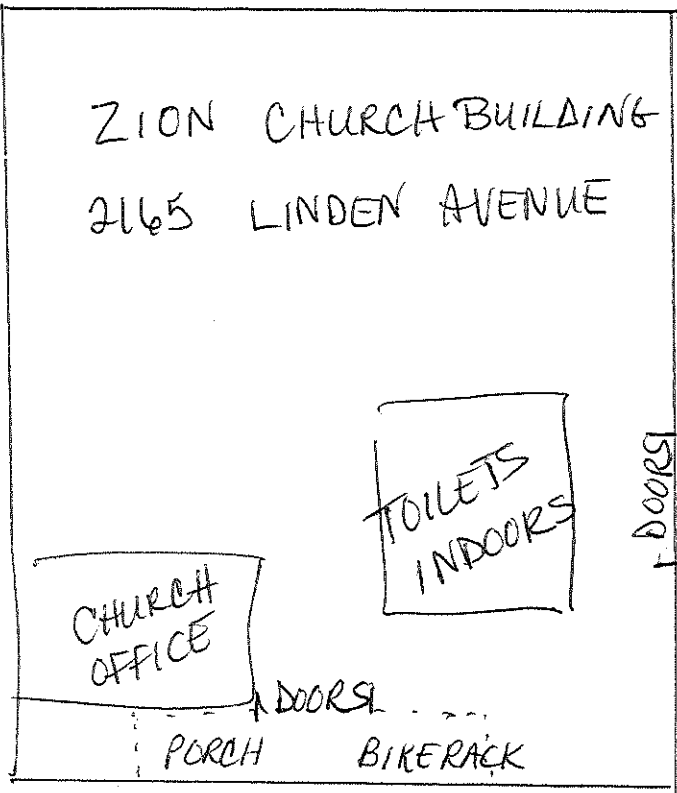 ZION CHURCH BUILDING
2165 LINDEN AVENUE
TOILETS
INDOORS
DOORS
CHURCH
OFFICE
DOORS
PORCH
BIKERACK